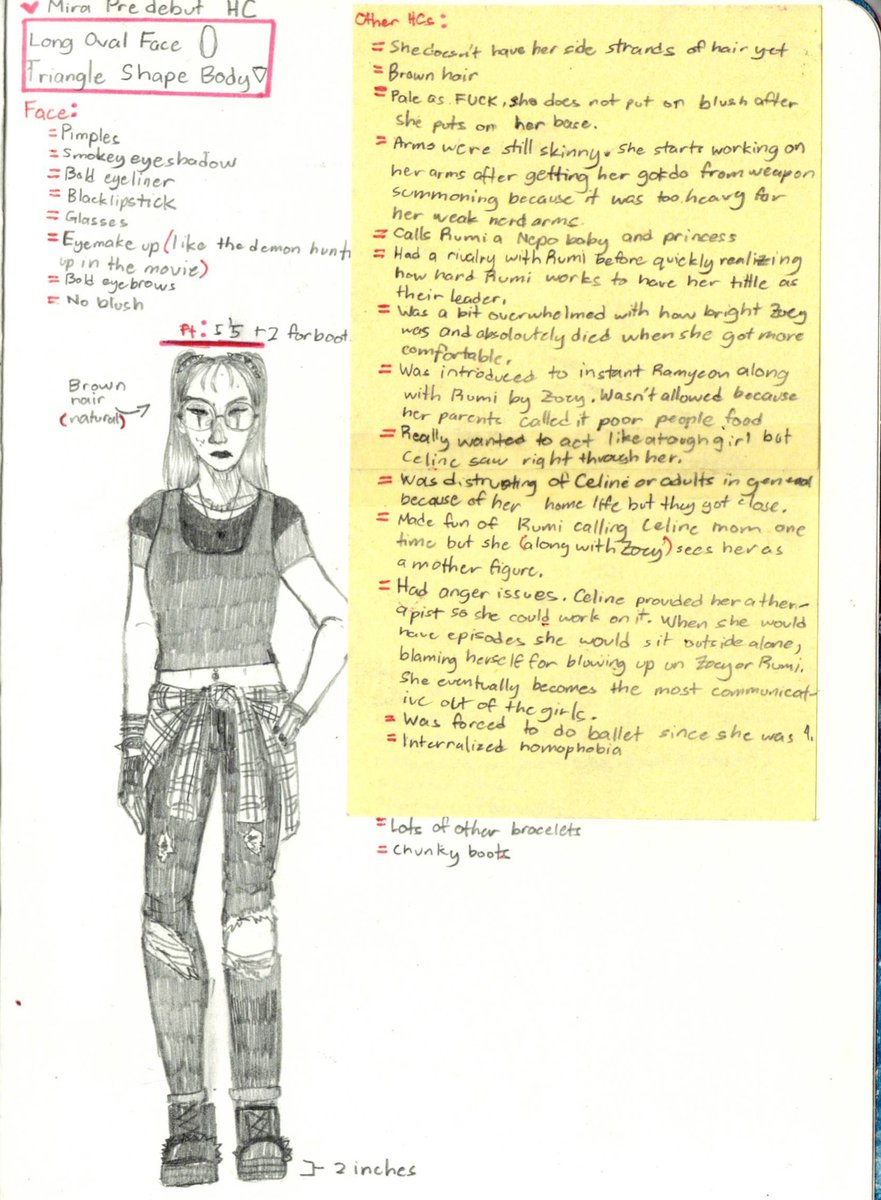 Mira Pre debut HC
Long Oval Face
Triangle Shape Body
Face:
= Pimples
= Smokey eyeshadow
= Bold eyeliner
= Black lipstick
= Glasses
= Eyemake up (like the demon hunt
up in the movie)
= Bold eyebrows
= No blush
Ft: 5'5 +2 for boot
Brown
hair
(natural)
Other HCs:
= She doesn't have her side strands of hair yet
= Brown hair
= Pale as FUCK, she does not put on blush after
she puts on her base.
= Arms were still skinny. She starts working on
her arms after getting her gokdo from weapon
summoning because it was too heavy for
her weak nerd arms.
= Calls Rumi a Nepo baby and princess
= Had a rivalry with Rumi before quickly realizing
how hard Rumi works to have her tittle as
their leader.
= Was a bit overwhelmed with how bright Zoey
was and absoloutely died when she got more
comfortable.
= Was introduced to instant Ramyeon along
with Rumi by Zoey. Wasn't allowed because
her parents called it poor people food
= Really wanted to act like a tough girl but
Celine saw right through her.
= Was distrusting of Celine or adults in general
because of her home life but they got close.
= Made fun of Rumi calling Celine mom one
time but she (along with Zoey) sees her as
a mother figure.
= Had anger issues. Celine provided her a ther-
apist so she could work on it. When she would
have episodes she would sit outside alone,
blaming herself for blowing up on Zoey or Rumi.
She eventually becomes the most communicat-
ive out of the girls.
= Was forced to do ballet since she was 4.
= Internalized homophobia
= Lots of other bracelets
= Chunky boots
2 inches